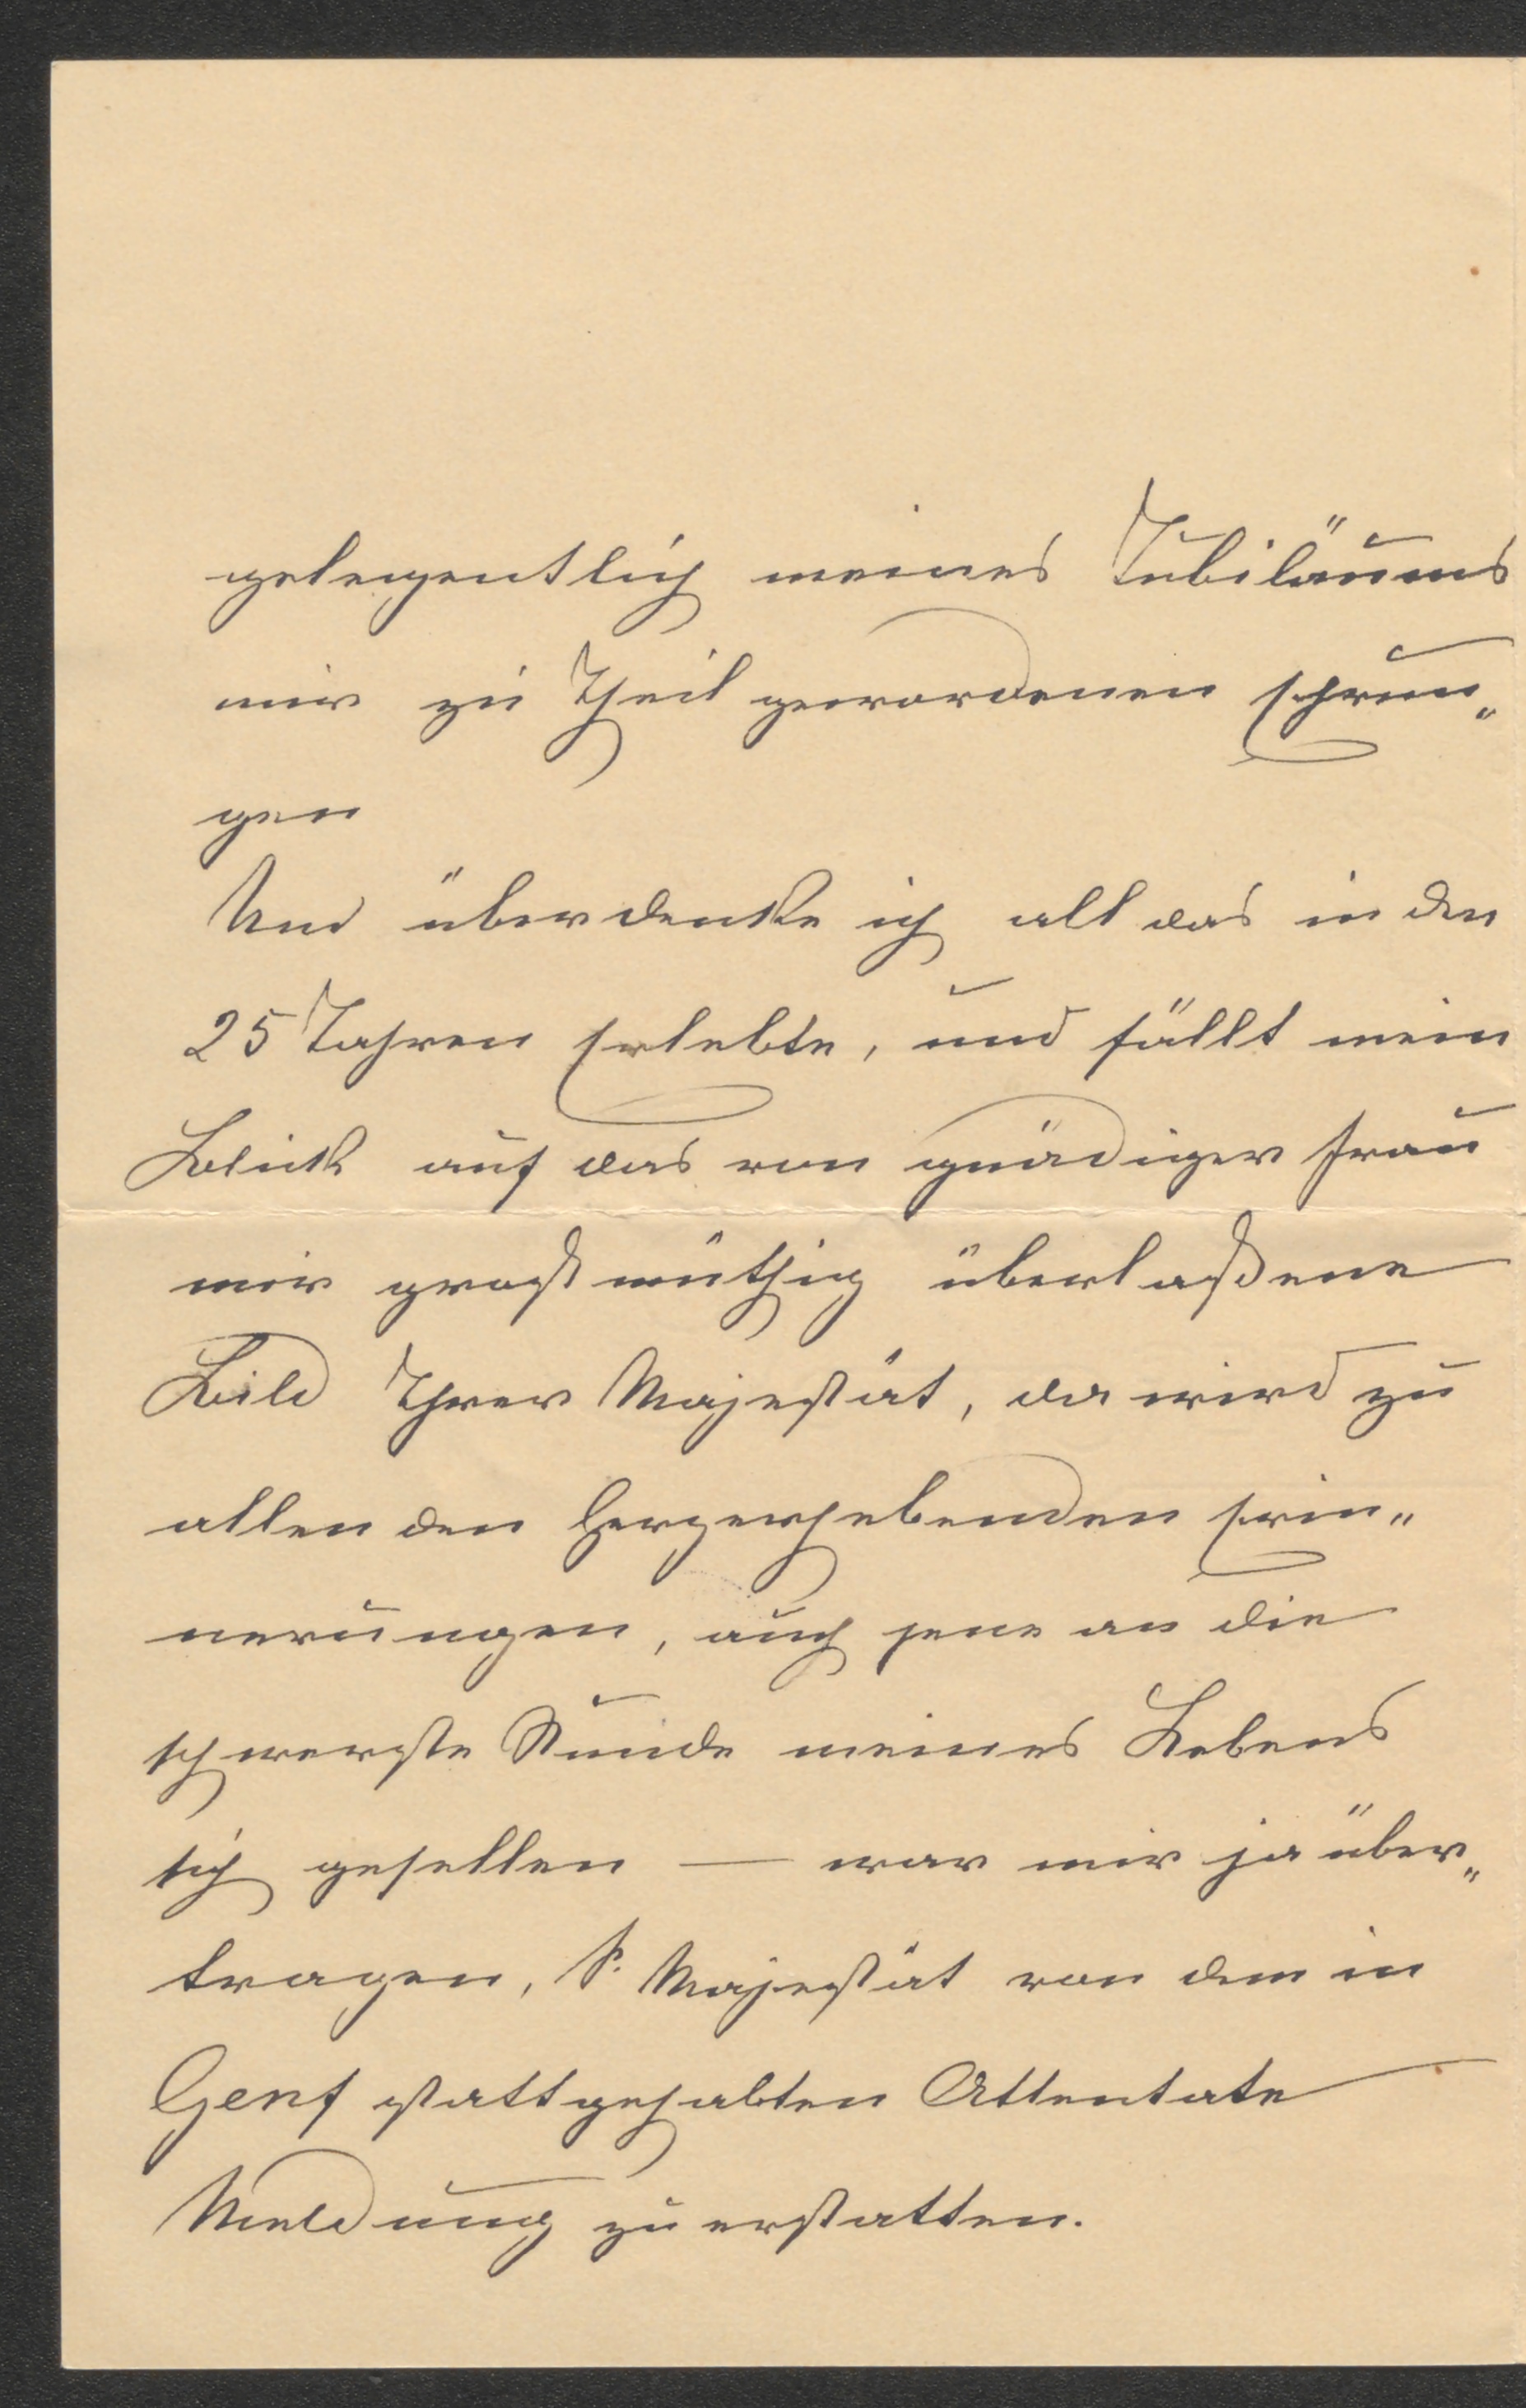 gelegentlich meines Jubiläums
mir zu Theil gewordenen Ehrun„
gen
Und überdenke ich all das in den
25 Jahren Erlebte, und fällt mein
Blick auf das von gnädiger Frau
mir großmüthig überlaßene
Bild Ihrer Majestät, da wird zu
allen den herzerhebenden Erin„
nerungen, auch jene an die
schwerste Stunde meines Lebens
sich gesellen — war mir ja über„
tragen, Sr. Majestät von dem in
Genf stattgehabten Attentate
Meldung zu erstatten.